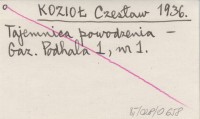 KOZIOŁ Czesław 1936.
Tajemnica powodzenia -
Gaz. Podhala 1, nr 1.